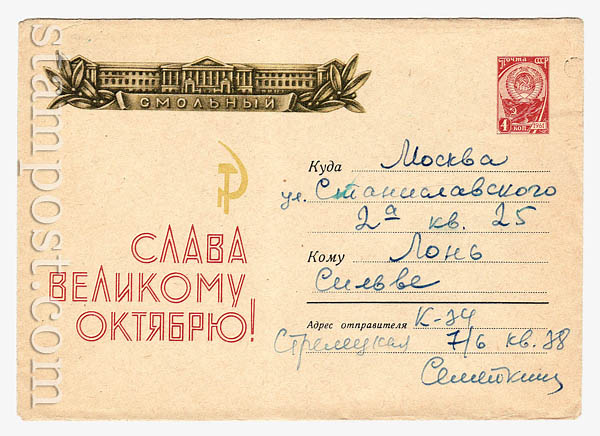 stampost.com
СМОЛЬНЫЙ
Почта СССР
4 коп. 1961
Куда Москва
ул. Станиславского
2а кв. 25
СЛАВА
ВЕЛИКОМУ
ОКТЯБРЮ!
Кому Лонь
Сильве
Адрес отправителя К-74
Стрелецкая 7/6 кв. 78